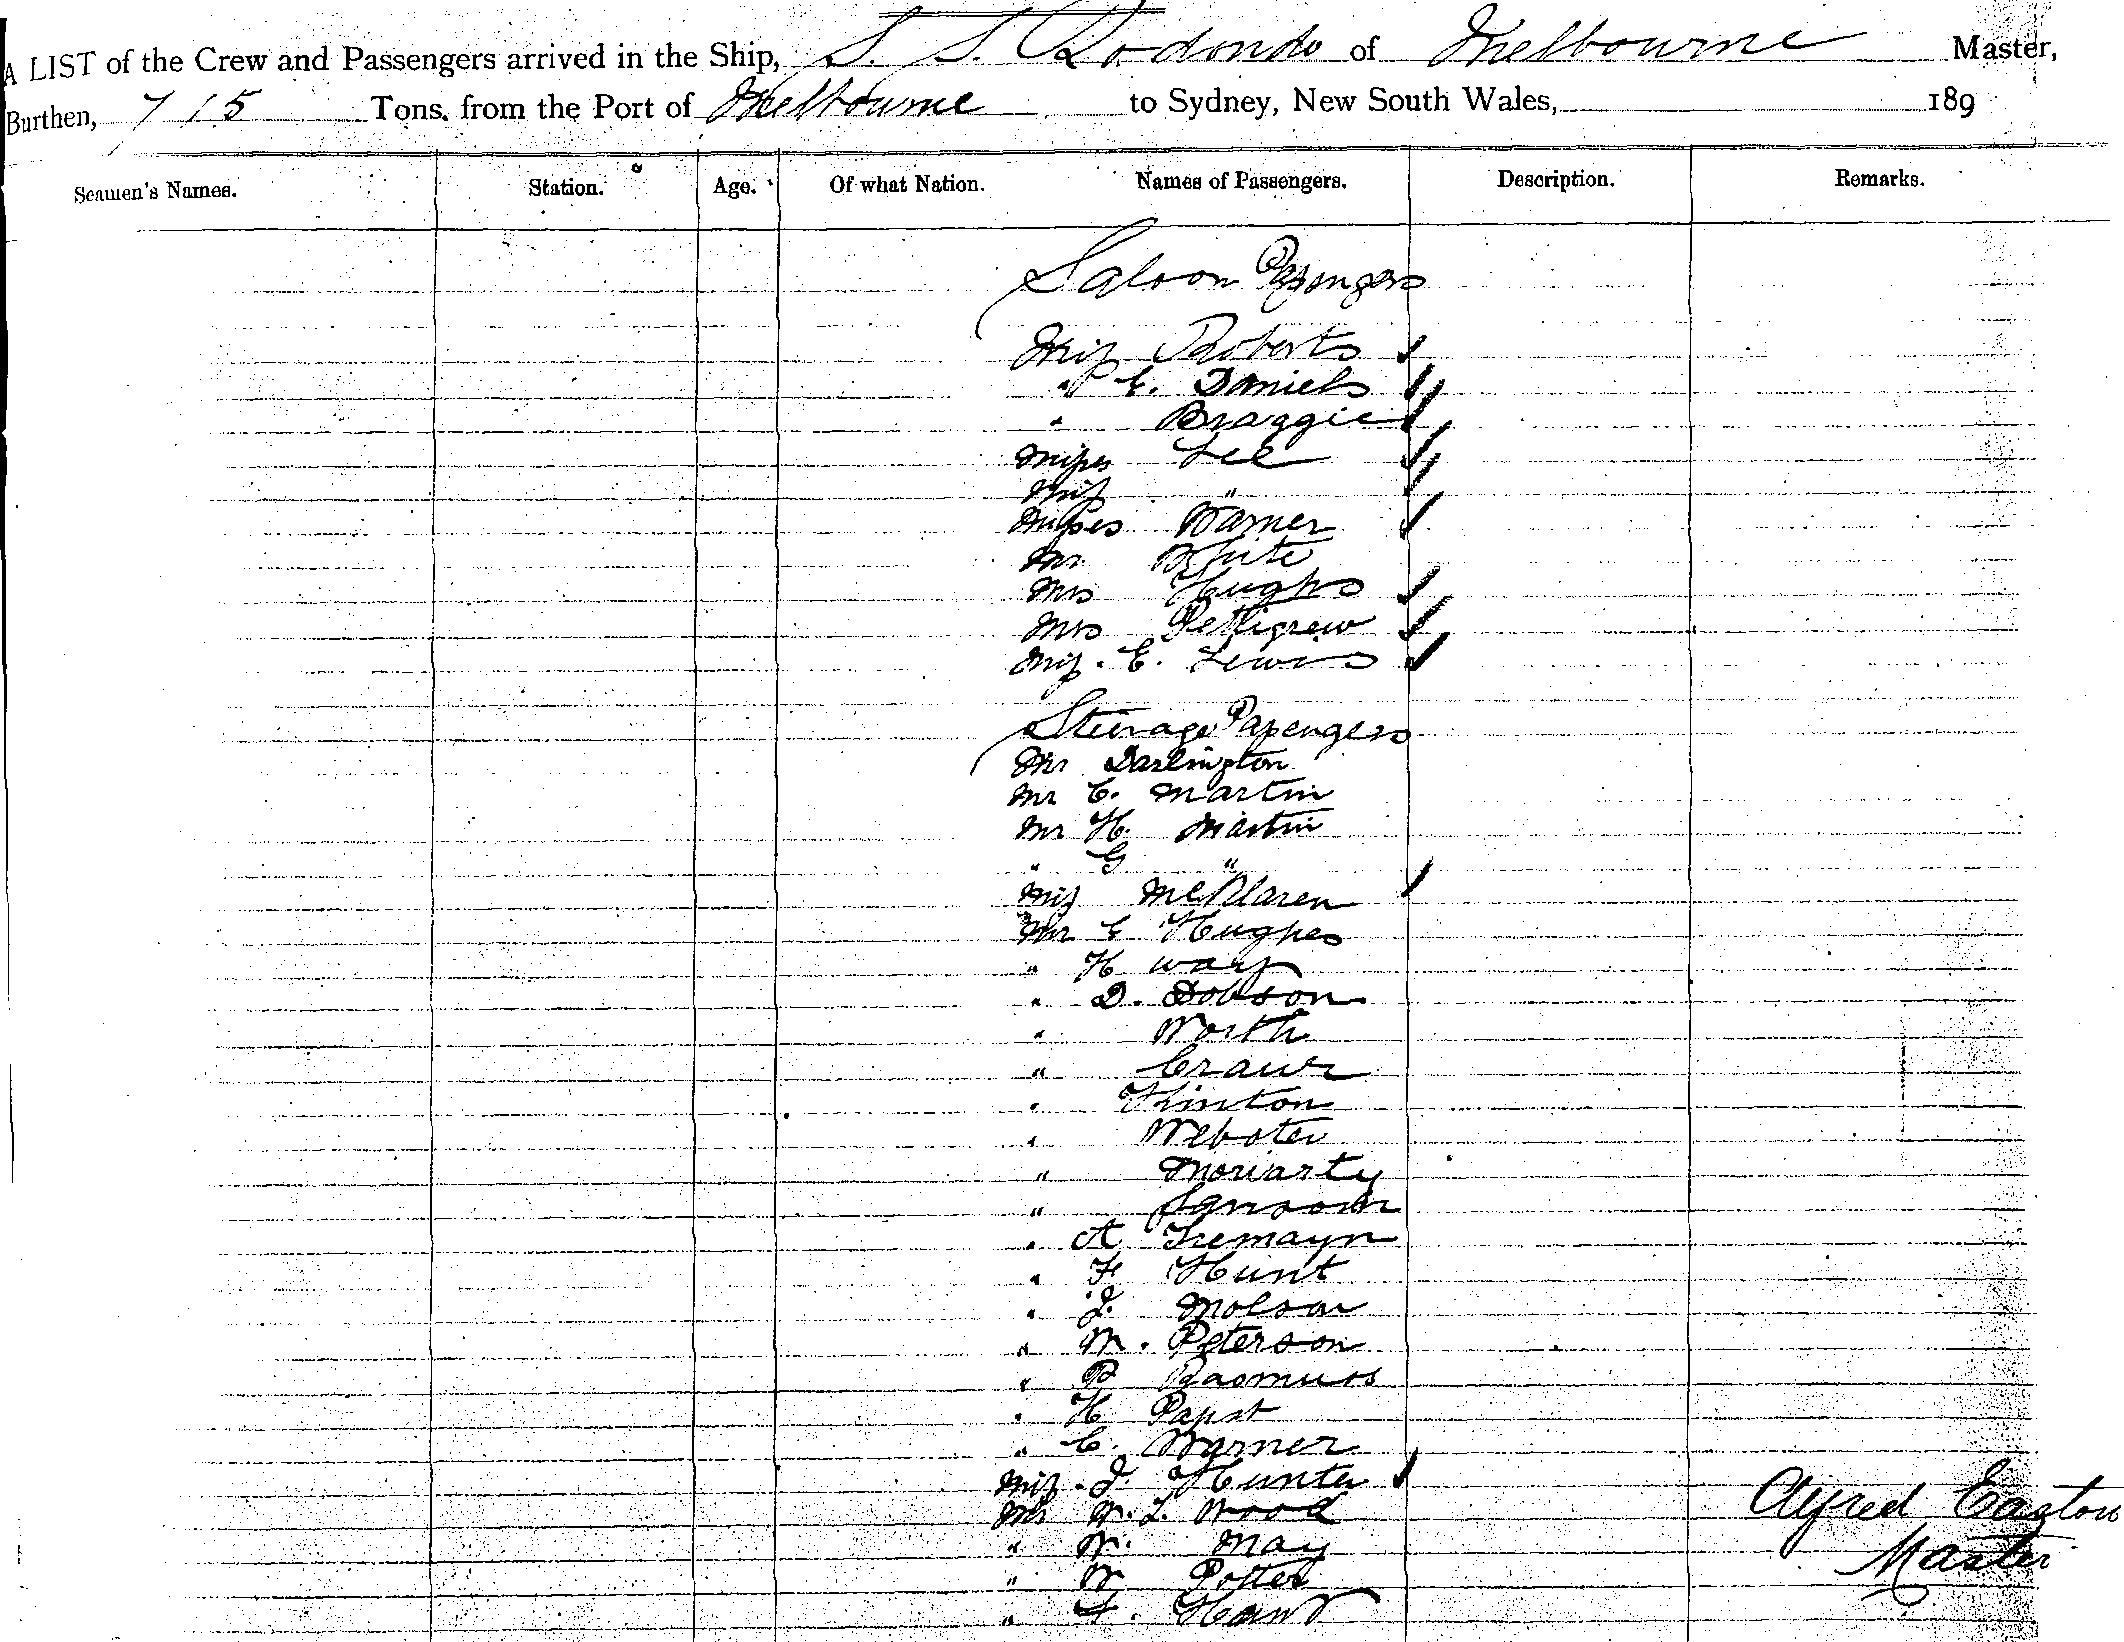 A LIST of the Crew and Passengers arrived in the Ship, S. S. Rodondo of Melbourne Master,
Burthen, 715 Tons. from the Port of Melbourne to Sydney, New South Wales, 189
Seamen's Names. Station. Age. Of what Nation. Names of Passengers. Description. Remarks.
Saloon Passengers
Miss Roberts
" C. Daniels
" Braggie
Misses Lee
Miss "
Misses Warner
Mr White
Mrs Hughes
Mrs Pettigrew
Miss. C. Lewis
Steerage Passengers
Mr Darlington
Mr C. Martin
Mr H. Martin
" G "
Miss McLaren
Mr C Hughes
" H Way
" D. Dobson
" North
" 
" Hinton
" Webster
" Moriarty
" 
" A Tremayn
" F Hunt
" J. Molson
" W. Peterson
" P Rasmuss
" H Papst
" C. Warner
Miss J. Hunter
Mr W. L. Wood
" W. May
" W Potter
" F.
Alfred Easton
Master